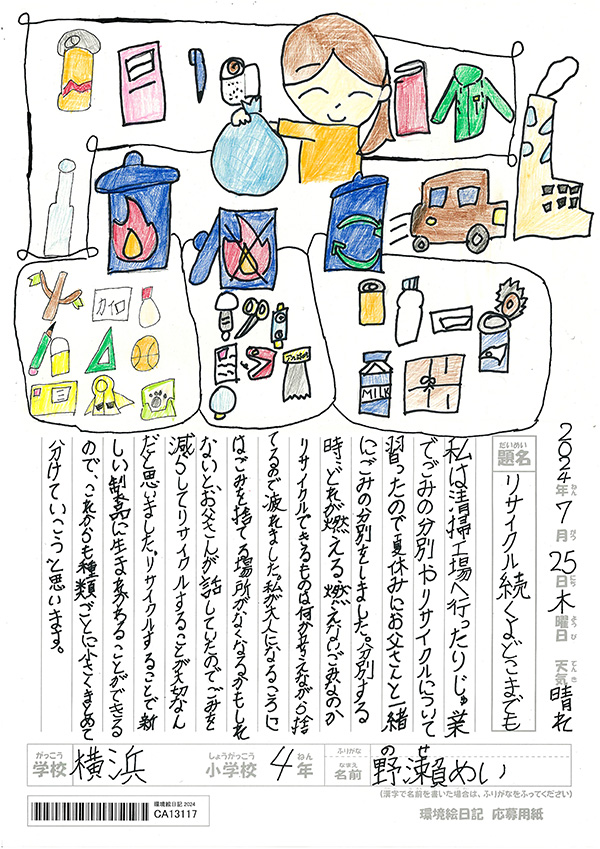 カイロ
アルミホイル
MILK
2024年ねん7月がつ25日にち木曜日ようび 天気てんき晴れ
だいめい
題名 リサイクル続くよどこまでも
私は清掃工場へ行ったりじゅ業
でごみの分別やリサイクルについて
習ったので夏休みにお父さんと一緒
にごみの分別をしました。分別する
時、どれが燃える、燃えないごみなのか
リサイクルできるものは何か考えながら捨
てるので疲れました。私が大人になるころに
はごみを捨てる場所がなくなるかもしれ
ないとお父さんが話していたのでごみを
減らしてリサイクルすることが大切なん
だと思いました。リサイクルすることで新
しい製品に生まれかわることができる
ので、これからも種類ごとに小さくまとめて
分けていこうと思います。
がっこう しょうがっこう ねん ふりがな のせ
学校 横浜 小学校 4年 なまえ 名前 野瀬めい
(漢字で名前を書いた場合は、ふりがなをふってください)
環境絵日記 2024
CA13117
環境絵日記 応募用紙